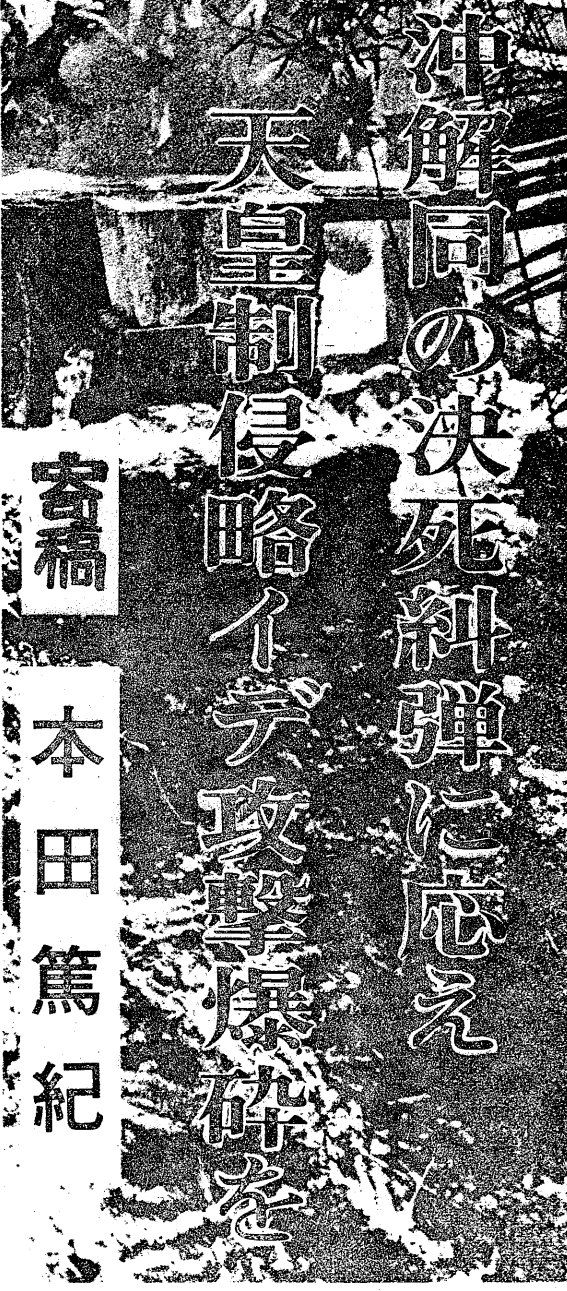 沖解同の決死糾弾に応え
天皇制侵略イデ攻撃爆砕を
寄稿
本田篤紀